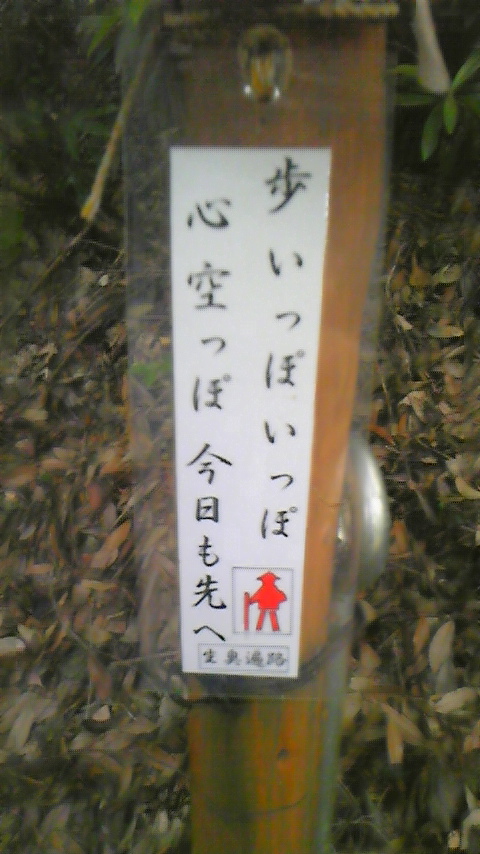 歩いっぽいっぽ
心空っぽ今日も先へ
遍路